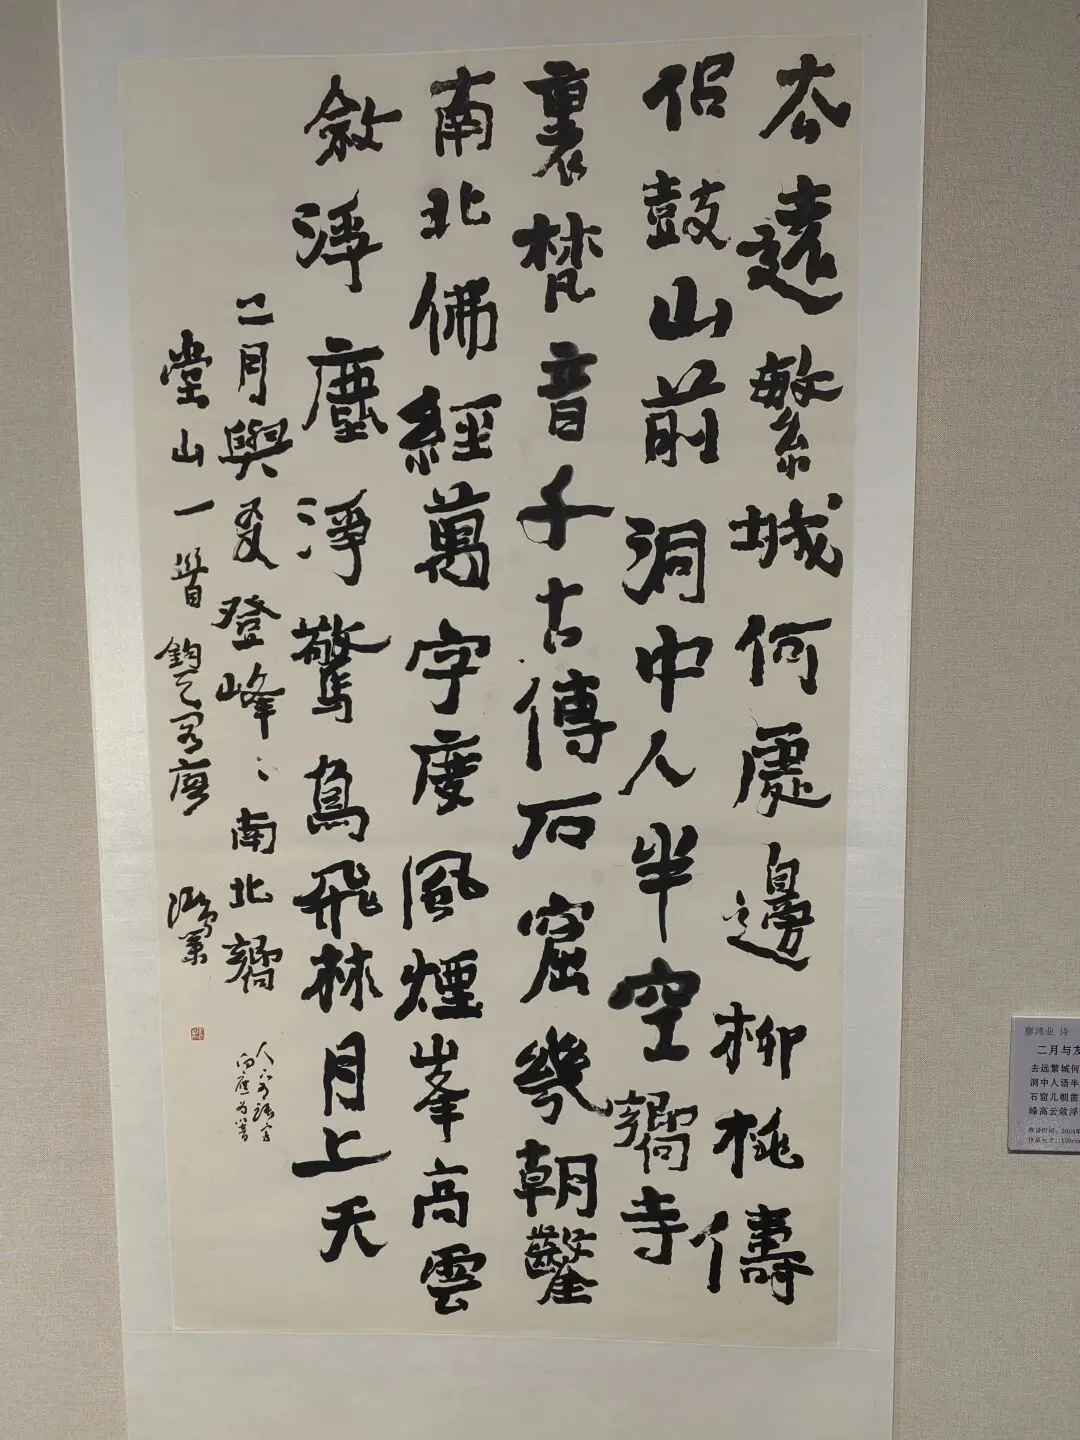 去遠繁城何處邊柳桃儔
侣鼓山前洞中人半空嚮寺
裏梵音千古傳石窟幾朝鑿
南北佛經萬字度風煙峯高雲
斂浮塵淨驚鳥飛林月上天
二月與友登峰〻南北嚮
堂山一首 鈞天閣廖 鴻業
人下有語字
向應为響
廖鸿业 诗
二月与友
去远繁城何
洞中人语半
石窟几朝凿
峰高云敛浮
作品尺寸：130cm